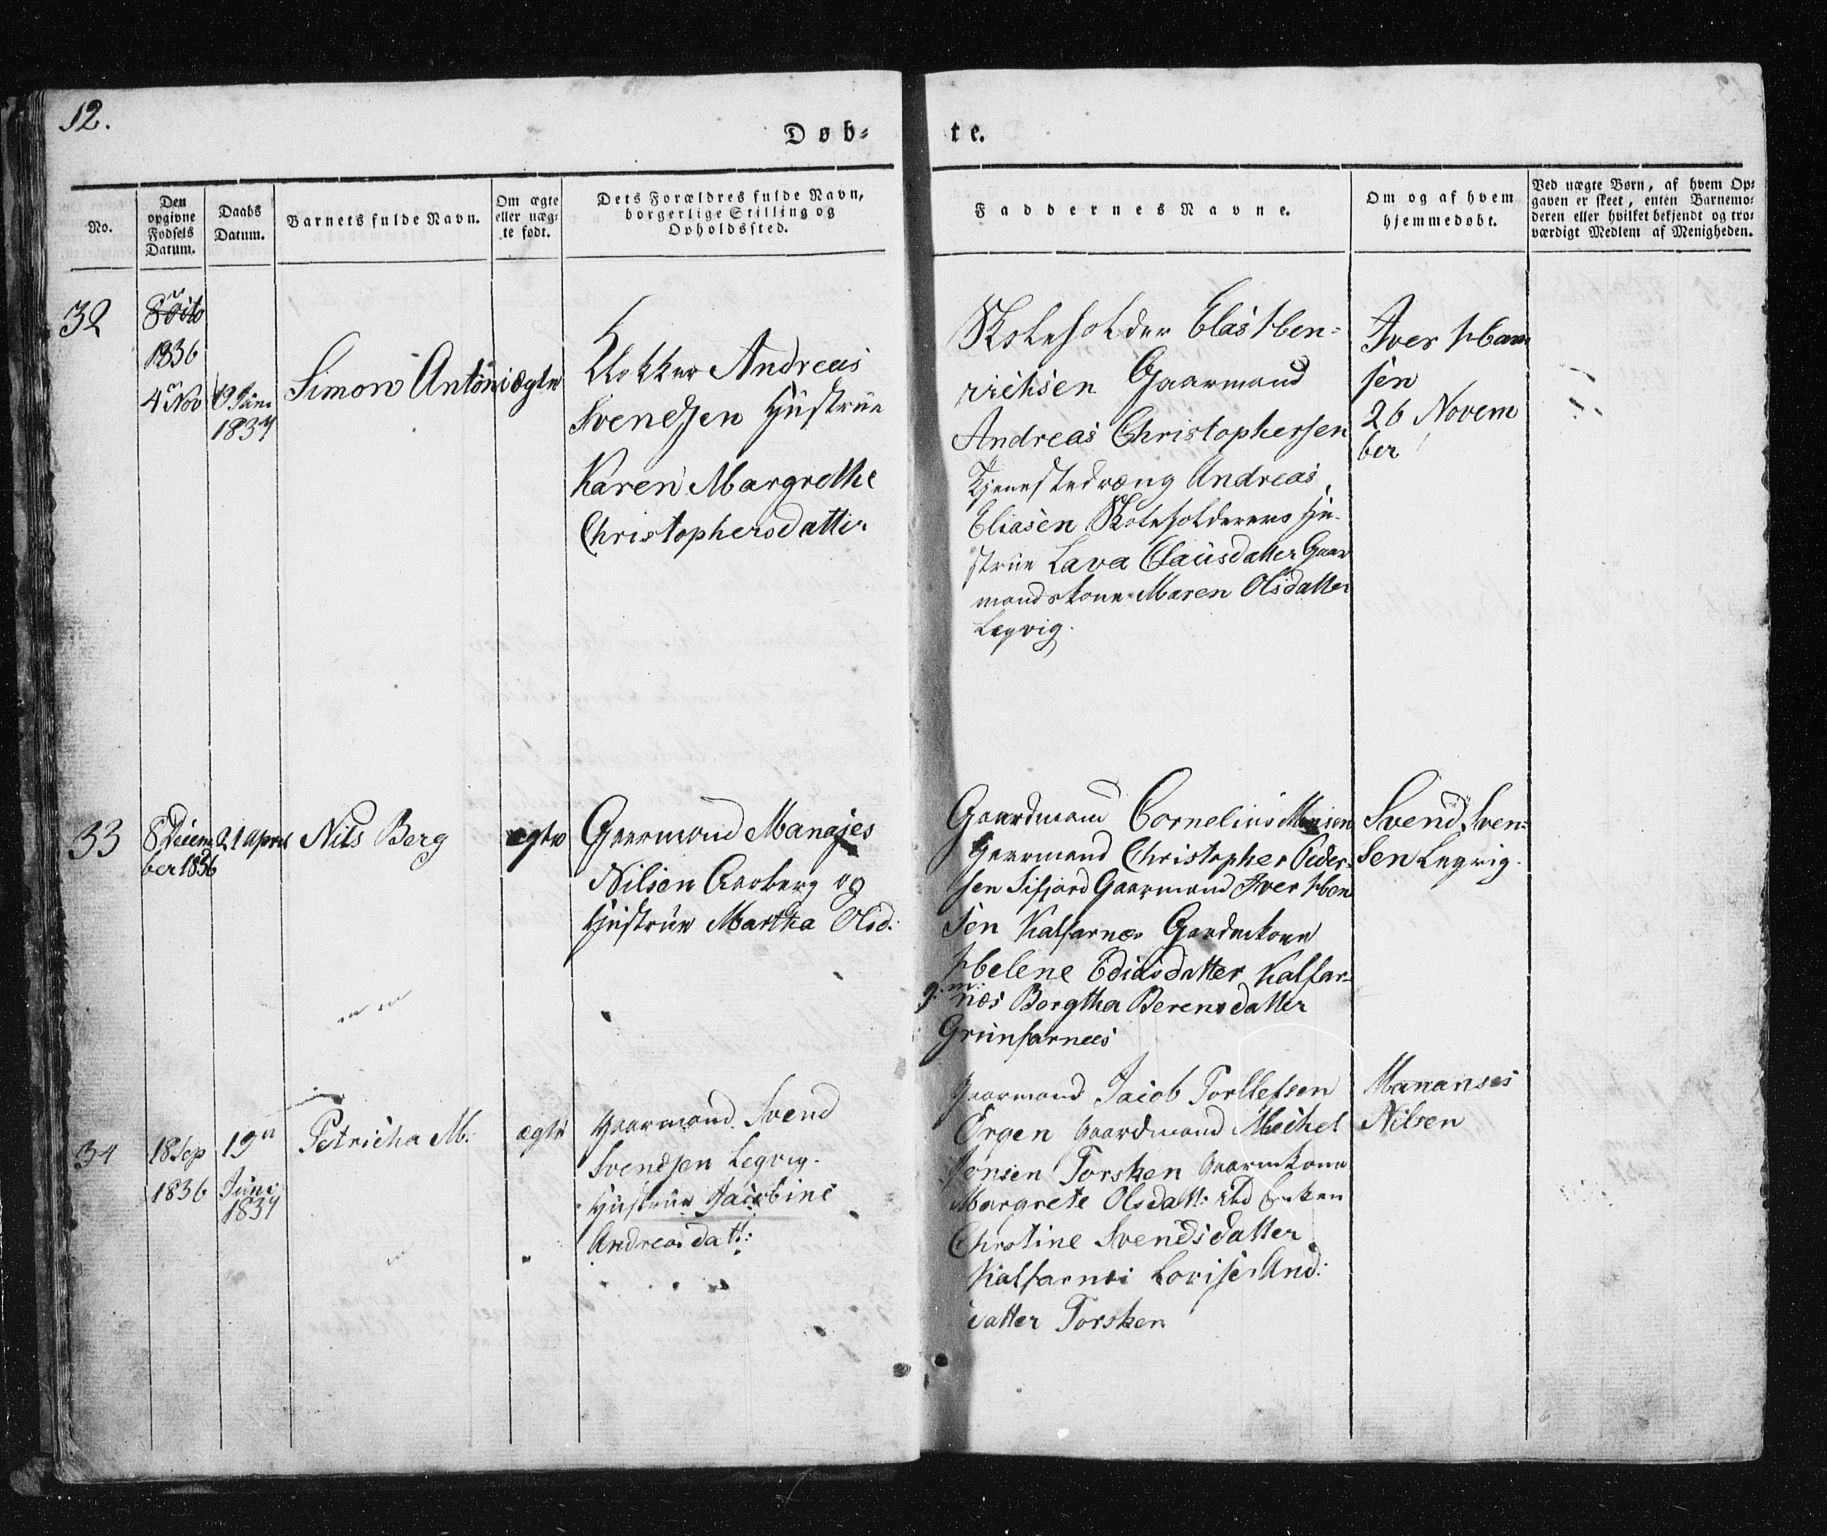 12.
Døb-
te.
No.
Den opgivne Fødsels Datum.
Daabs Datum.
Barnets fulde Navn.
Om ægte eller uæg-
te født.
Dets Forældres fulde Navn,
borgerlige Stilling og
Opholdssted.
Faddernes Navne.
Om og af hvem
hjemmedøbt.
Ved uægte Børn, af hvem Op-
gaven er skeet, enten Barnemo-
deren eller hvilket bekjendt og tro-
værdigt Medlem af Menigheden.
32
1836
4 Nov
Juni
1837
Simon Antoni
ægte
Klokker Andreas
Svendsen Hustrue
Karen Margrethe
Christophersdatter
Skoleholder Elas Hen-
richsen Gaarmand
Andreas Christophersen
Tjenestedræng Andreas
Eliasen Skoleholderens Hu-
strue Lava Clausdatter Gaar
mandskone Maren Olsdatter
Legvig.
Iver Han
sen
26 Novem
ber
33
8 Decem
ber 1836
21 April
Nils Berg
ægte
Gaarmand Manases
Nilsen Aaoberg og
Hustrue Martha Olsd:
Gaardmand Cornelius Monsen
Gaarmand Christopher Peder-
sen Sifjord Gaarmand Iver Han
sen Kalfarnes Gardmkone
Helene Ediasdatter Kalfar-
nes g: m: Bergtha Berensdatter
Grunfarnees
Svend Sven-
sen Legvig.
34
18 Sep
1836
19
Juni
1837
Petricha M:
ægte
Gaarmand Svend
Svendsen Legvig.
Hustrue Jacobine
Andreasdatt:
Gaarmand Jacob Torllefsen
Ørgen Gaardmand Michel
Jonsen Torsken Gaarmkone
Margrete Olsdatt: Enken
Christine Svendsdatter
Kalfarnes Lovise And:
datter Torsken
Mananses
Nilsen